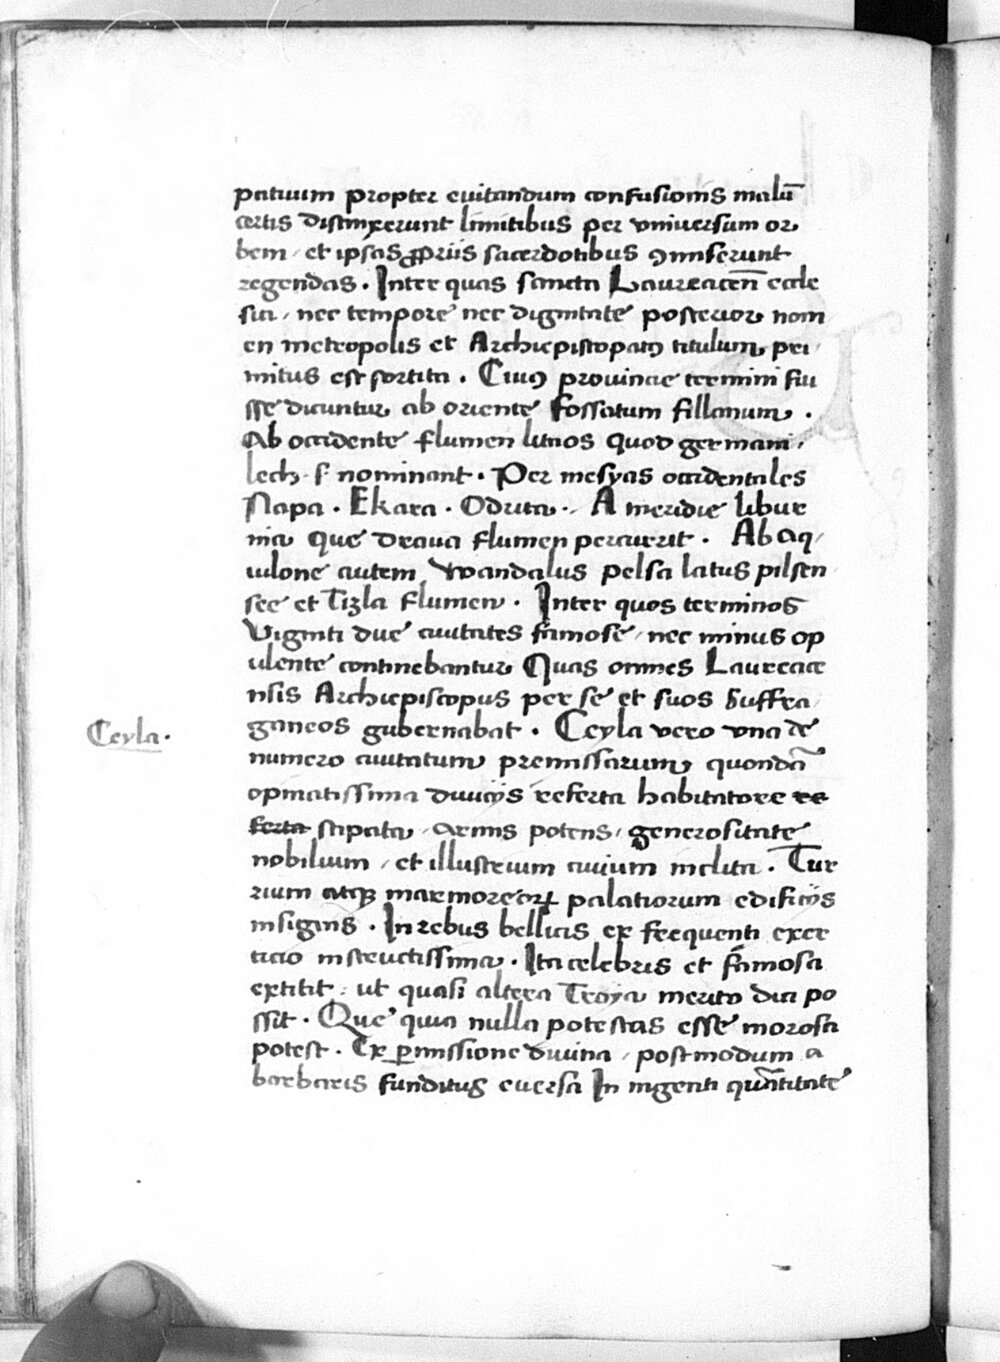 patiuum propter euitandum confusionis malū
certis distinxerunt limitibus per vniuersum or
bem / et ipsas ꝓpriis sacerdotibus ꝯmiserunt
regendas . Inter quas sancta Laureaceñ eccle
sia / nec tempore nec dignitate posterior nom
en metropolis et Archiepiscopatꝯ titulum pri
mitus est sortita . Cuiꝯ prouincie termini fui
sse dicuntur ab oriente fossatum fillanum .
Ab occidente flumen litnos quod germani /
lech . s. nominant . Per mesyas occidentales
Napa . Ekara . Odrita . A meridie libur
nia que Draua flumen percurrit . Ab aq /
uilone autem Wandalus pelsa latus pilsen
see et Tizla flumen . Inter quos terminos
Viginti due ciuitates famose / nec minus op
ulente continebantur Quas omnes Laureace
nsis Archiepiscopus per se et suos suffra
Ceyla .
ganeos gubernabat . Ceyla vero vna de
numero ciuitatum premissarum quondā
opinatissima diuicijs referta habitatore re
ferta stipata / armis potens / generositate
nobilium / et illustrium ciuium inclita . Tur
rium atqꝫ marmoreorꝝ palatiorum edificijs
insignis . In rebus bellicis ex frequenti exer
ticio instructissima . Ita celebris et famosa
extitit : ut quasi altera Troya merito dici po
ssit . Que quia nulla potestas esse morosa
potest . Ex ꝑmissione diuina / postmodum a
barbaris funditus euersa In ingenti quātitate